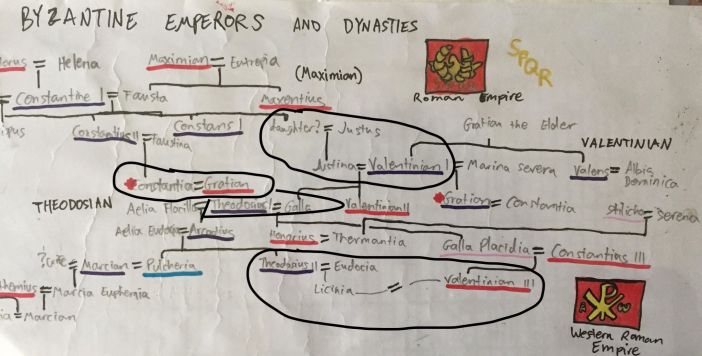 BYZANTINE EMPERORS AND DYNASTIES
= Helena
Maximian = Eutropia
(Maximian)
SPQR
Roman Empire
= Constantine I = Fausta
Maxentius
Constantius II = Faustina
Constans I
daughter? = Justus
Gratian the Elder
VALENTINIAN
Justina = Valentinian I = Marina Severa
Valens = Albia Dominica
Constantia = Gratian
Gratian = Constantia
THEODOSIAN
Aelia Flacilla = Theodosius I = Galla
Valentinian II
Stilicho = Serena
Aelia Eudoxia = Arcadius
Honorius = Thermantia
Galla Placidia = Constantius III
= Marcian = Pulcheria
Theodosius II = Eudocia
= Marcia Euphemia
Licinia = Valentinian III
= Marcian
A W
Western Roman Empire